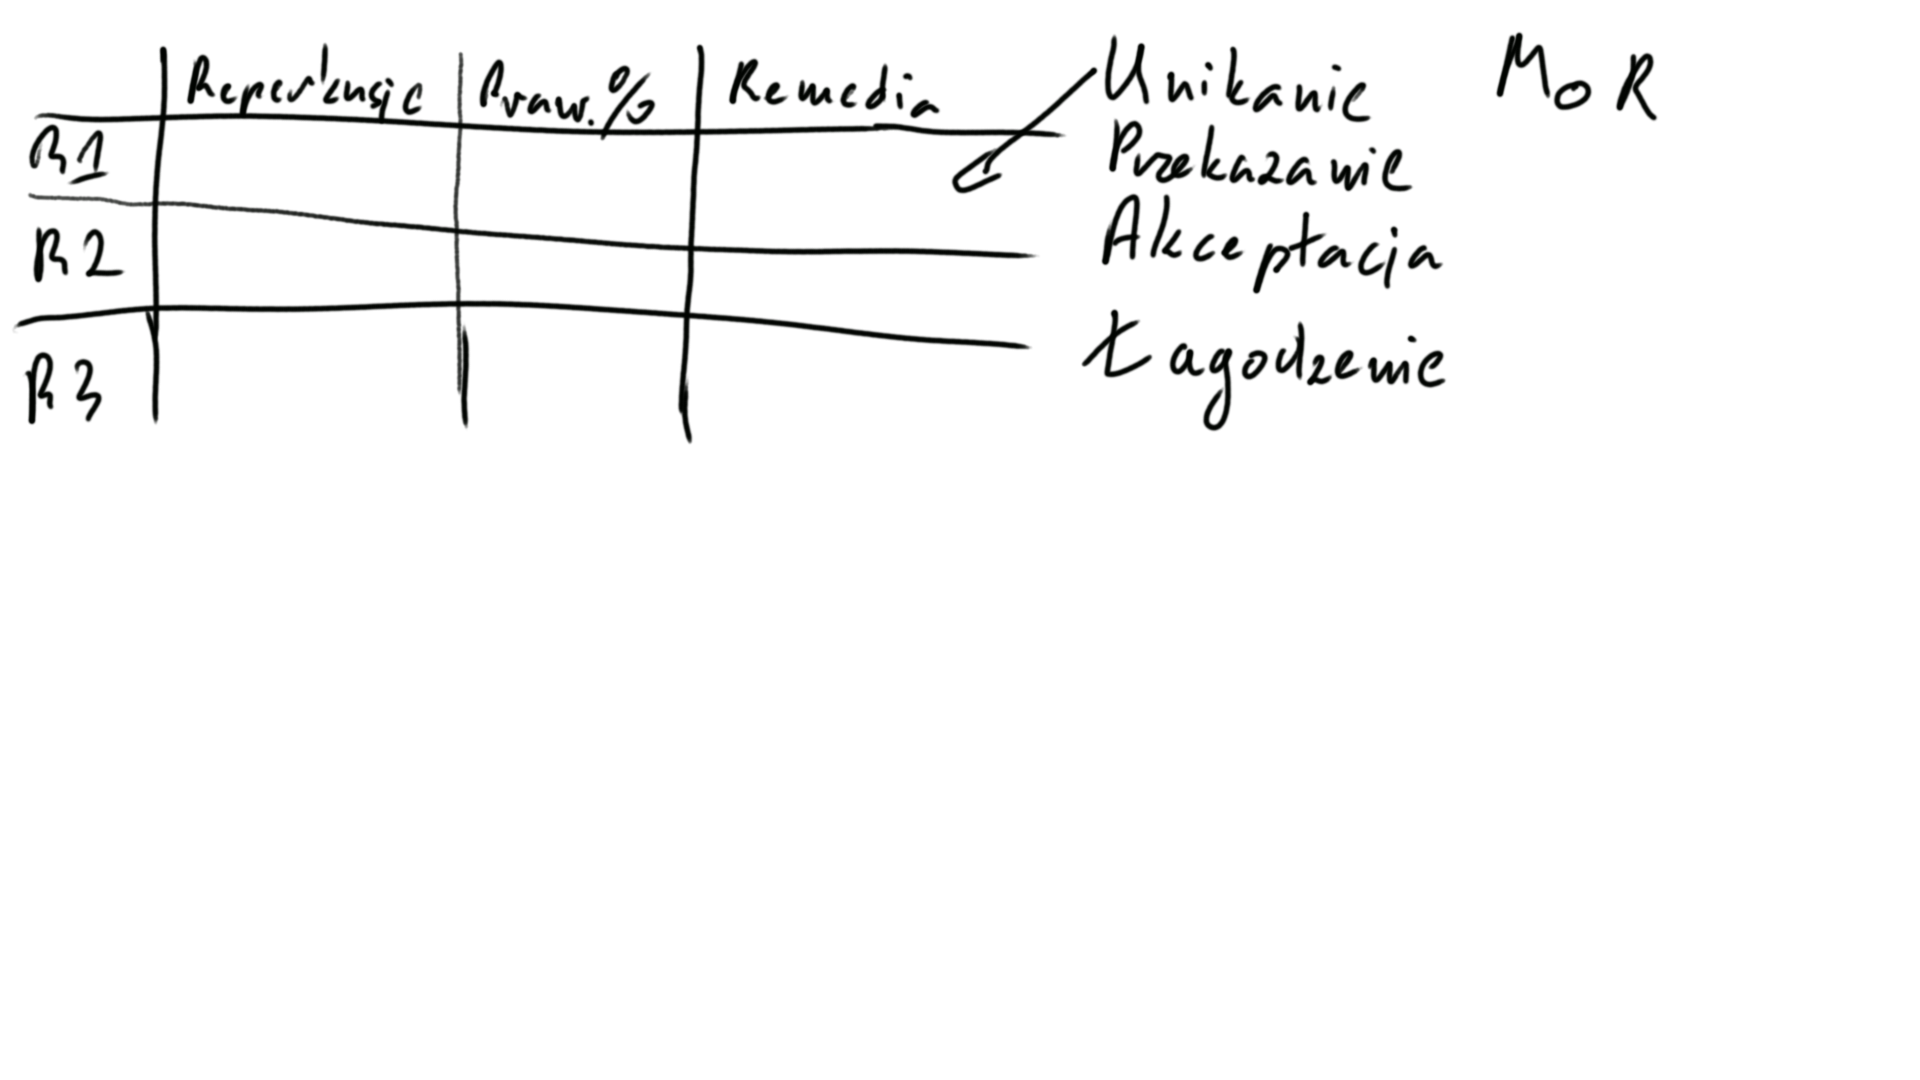 Reperkusje Praw.% Remedia
R1
R2
R3
Unikanie
Przekazanie
Akceptacja
Łagodzenie
MoR